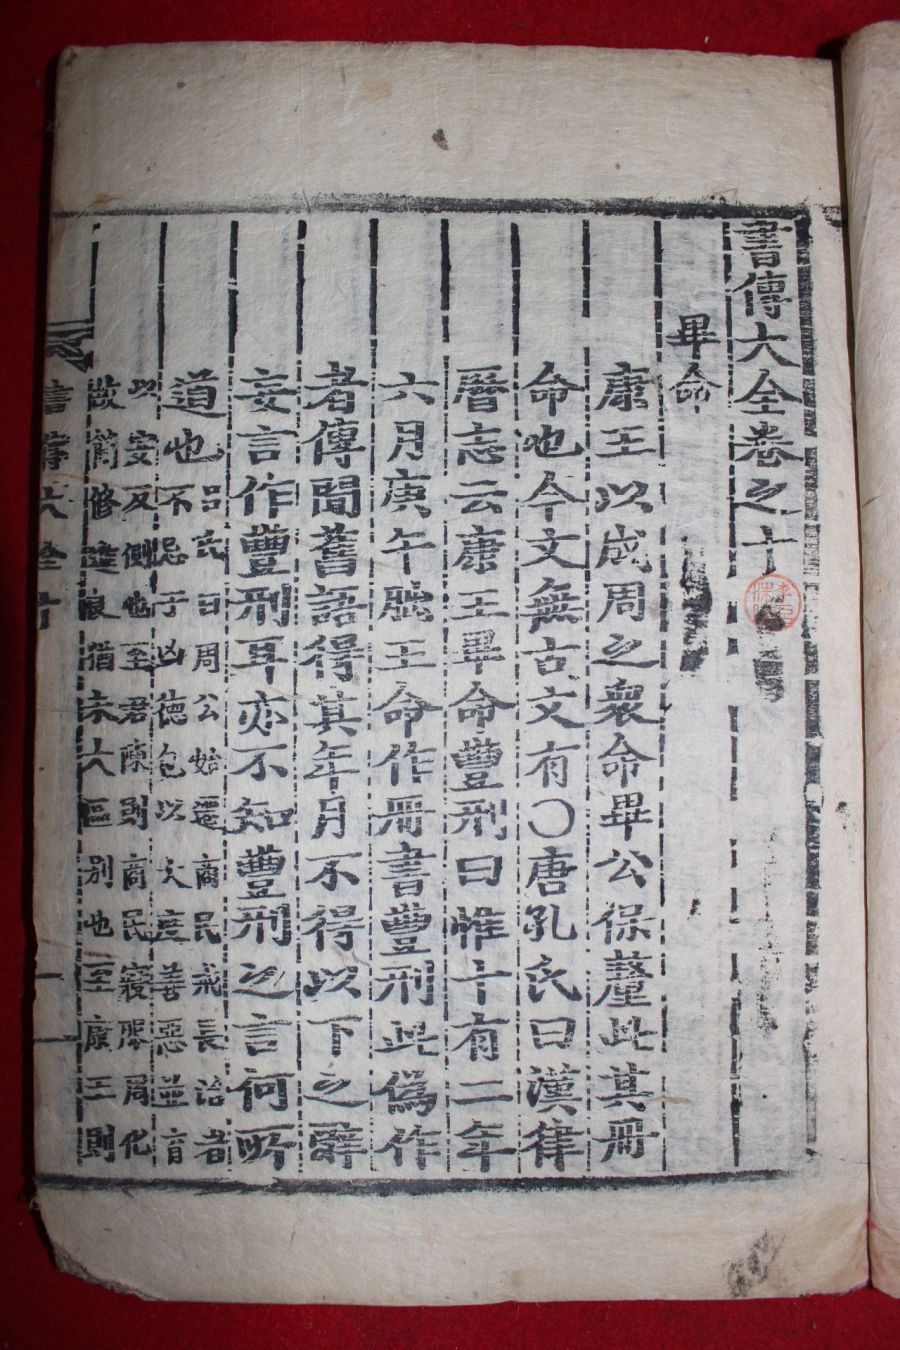 書傳大全卷之十
畢命
康王以成周之衆命畢公保釐此其冊
命也今文無古文有○唐孔氏曰漢律
曆志云康王畢命豐刑曰惟十有二年
六月庚午朏王命作冊書豐刑此僞作
者傳聞舊語得其年月不得以下之辭
妄言作豐刑耳亦不知豐刑之言何所
道也
呂氏曰周公始遷商民戒長治者
不忌于凶德包以大度善惡並育
以安反側也至君陳則商民寖服周化
故簡修進良猶未大區別也至康王則
書傳大全十
一